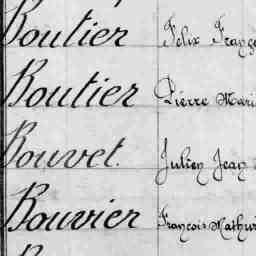 Boutier Felix Franço
Boutier Pierre Mari
Bouvet. Julien Jean
Bouvier François Mathur